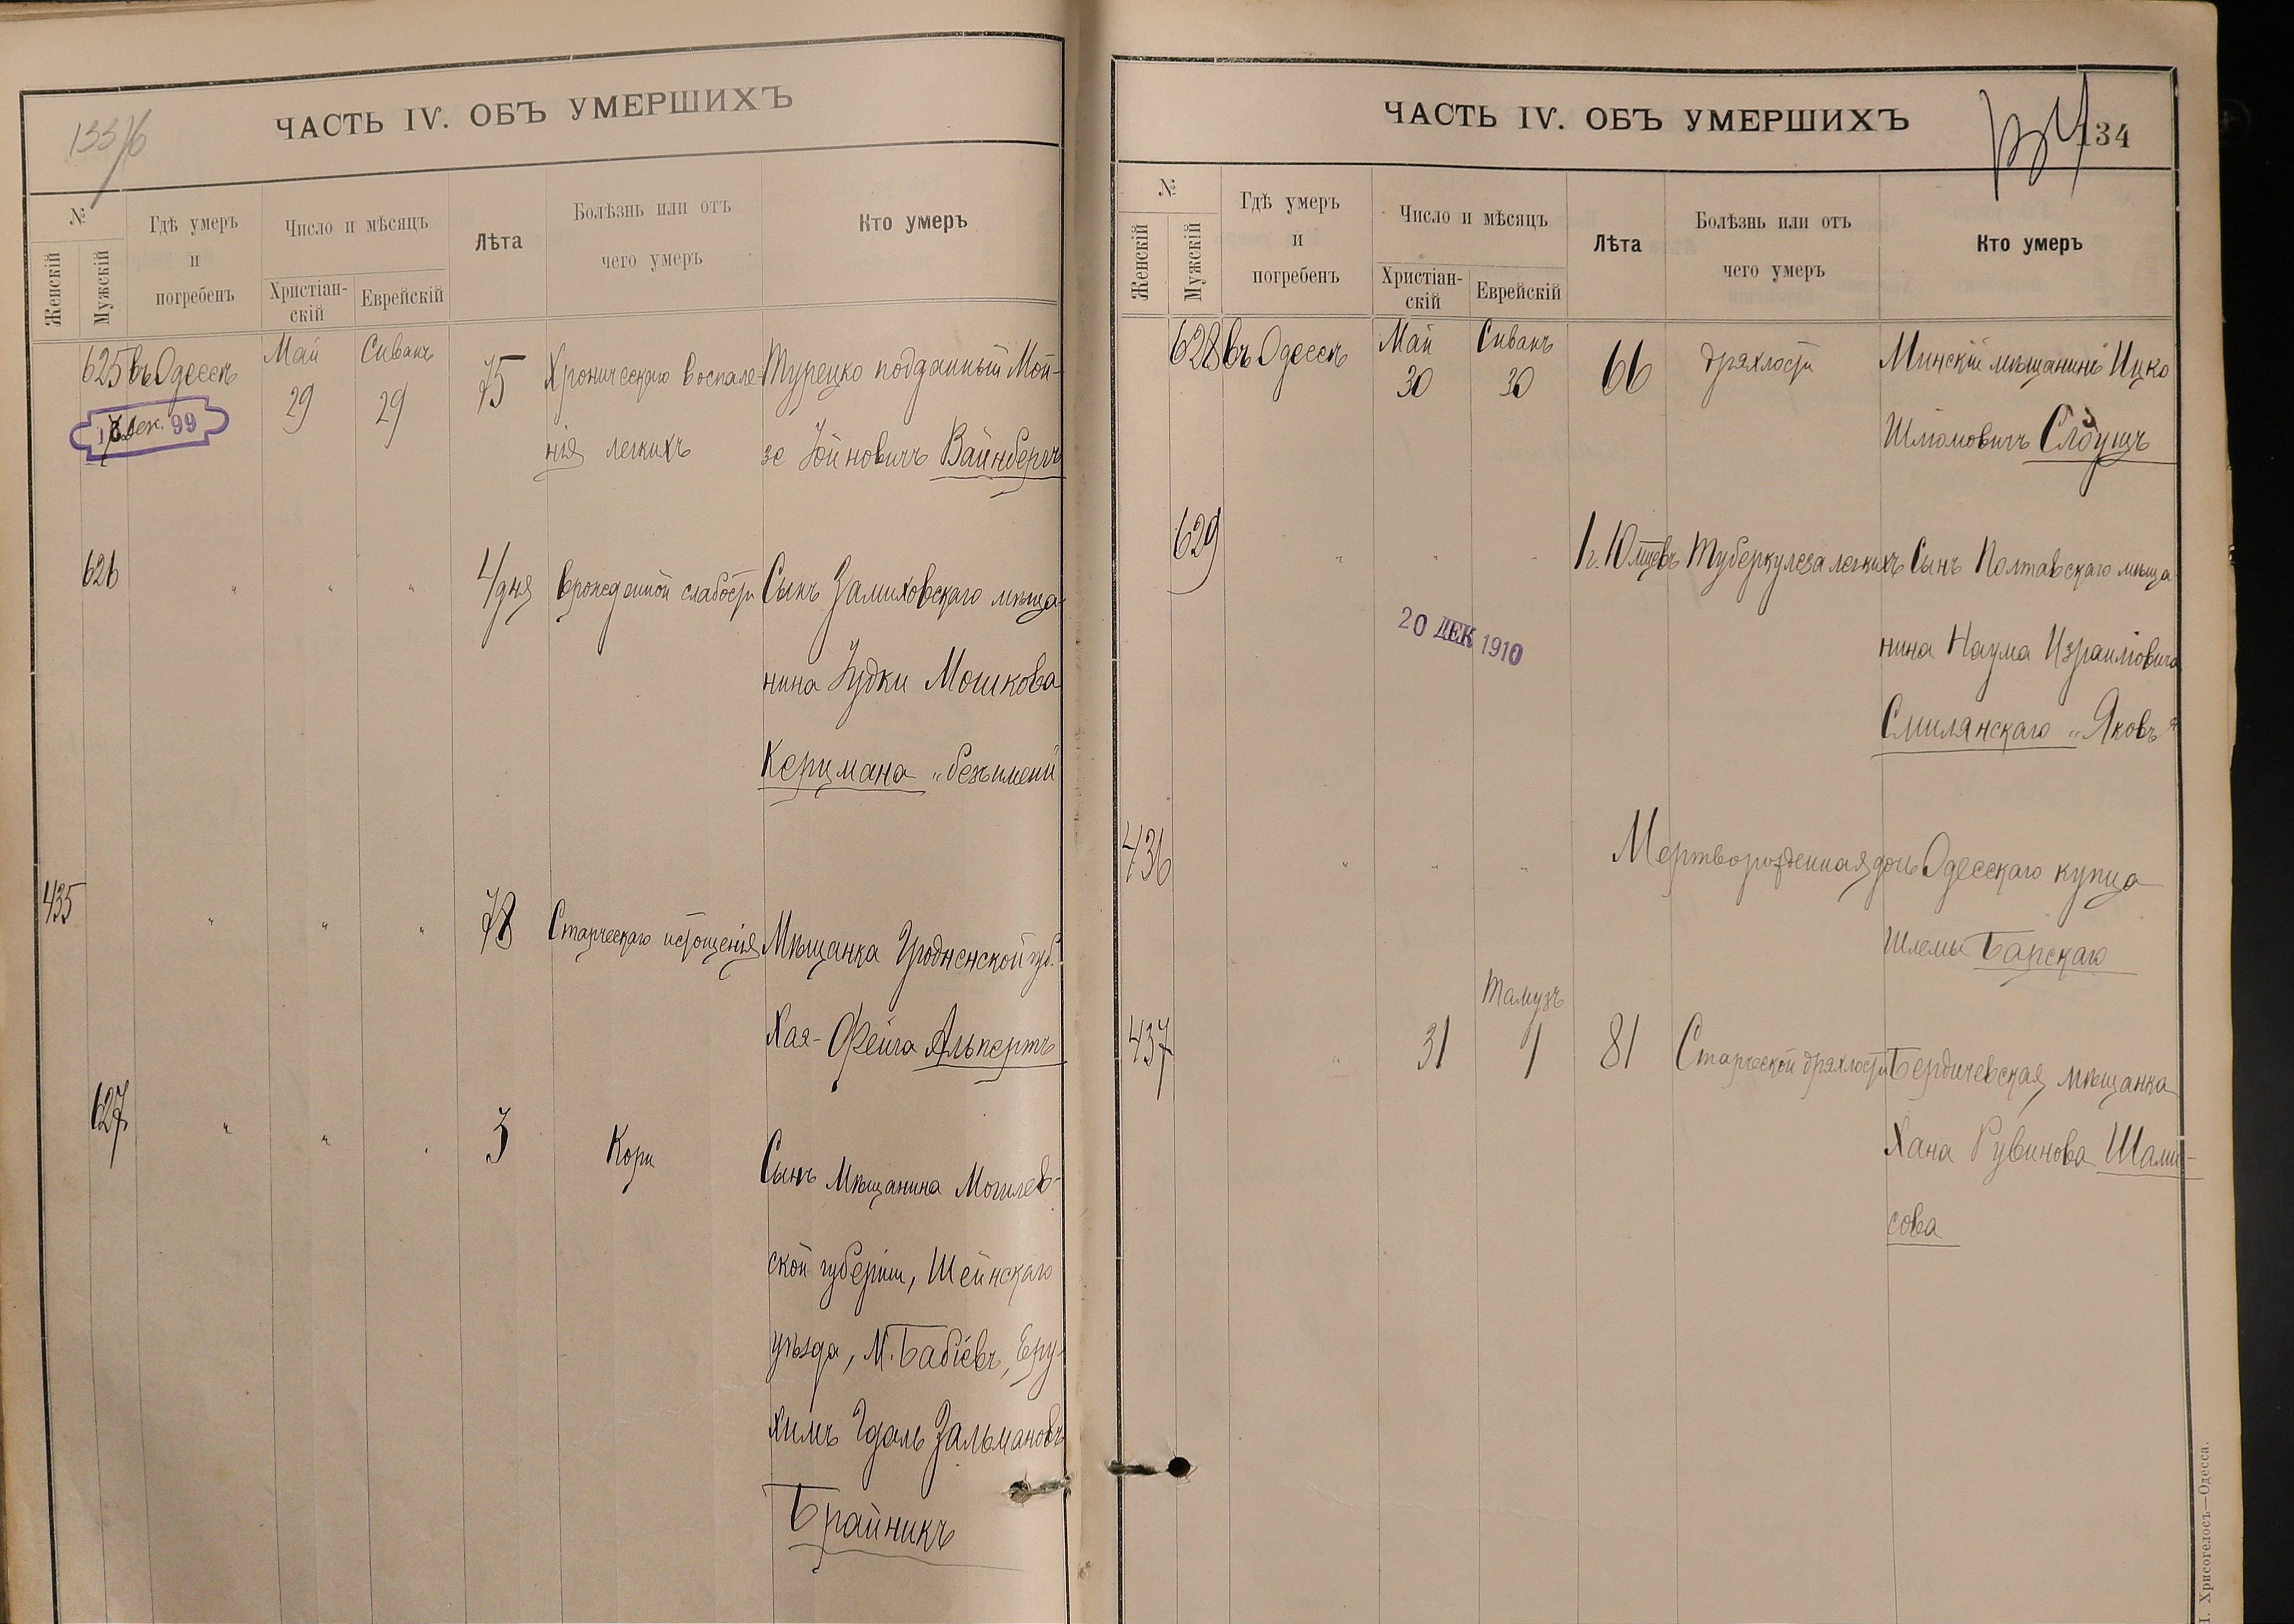 133/б
ЧАСТЬ IV. ОБЪ УМЕРШИХЪ
№
Женскій
Мужскій
Гдѣ умеръ
и
погребенъ
Число и мѣсяцъ
Христіан-
скій
Еврейскій
Лѣта
Болѣзнь или отъ
чего умеръ
Кто умеръ
625 въ Одессѣ Май Сиванъ 75 Хроническаго воспале- Турецко подданный Мой-
29 29
нія легкихъ зе Іойновичъ Вайнбергъ
Дек. 99
626 " " " 4 дня врожденной слабости Сынъ Замиховскаго мѣща-
нина Іудки Мошкова
Керцмана „безъимени"
435 " " " 78 Старческаго истощенія Мѣщанка Гродненской губ.
Хая-Фейга Альпертъ
627 " " " 3 Кори Сынъ мѣщанина Могилев-
ской губерніи, Шейнскаго
уѣзда, М. Бабіевъ, Еру-
химъ Гдаль Зальмановъ
Брайникъ
ЧАСТЬ IV. ОБЪ УМЕРШИХЪ
134
134
№
Женскій
Мужскій
Гдѣ умеръ
и
погребенъ
Число и мѣсяцъ
Христіан-
скій
Еврейскій
Лѣта
Болѣзнь или отъ
чего умеръ
Кто умеръ
628 въ Одессѣ Май Сиванъ 66 дряхлости Минскій мѣщанинъ Ицко
30 30
Шліомовичъ Слоущъ
629 " " " 1 г. 10 мцевъ Туберкулеза легкихъ Сынъ Полтавскаго мѣща
20 ДЕК 1910
нина Наума Израилiовича
Смилянскаго „Яковъ"
436 " " " Мертворожденная дочь Одесскаго купца
Шлемы Барскаго
Тамузъ
437 " 31 1 81 Старческой дряхлости Бердичевская мѣщанка
Хана Рувинова Шами-
сова
Хрисогелосъ—Одесса.